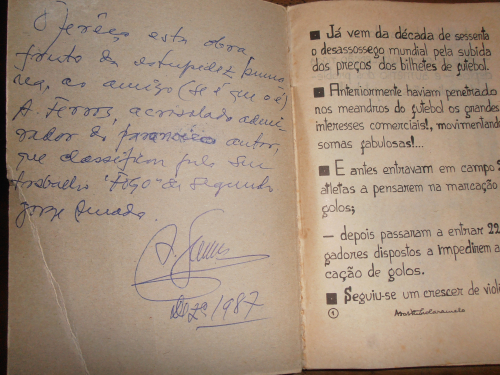 Ofereço esta obra
fruto da estupidez humana
ao amigo (se é que o é)
A. Ferros, acrisolado admi-
rador do autor,
que classificou pelo seu
trabalho "Fogo" de segundo
Jorge Amado.
Dezº 1987
■ Já vem da década de sessenta
o desassossego mundial pela subida
dos preços dos bilhetes de futebol.
■ Anteriormente haviam penetrado
nos meandros do futebol os grandes
interesses comerciais!, movimentando
somas fabulosas!...
■ E antes entravam em campo 2
atletas a pensarem na marcação
golos;
— depois passaram a entrar 22
gadores dispostos a impedirem a
cação de golos.
■ Seguiu-se um crescer de violê
1